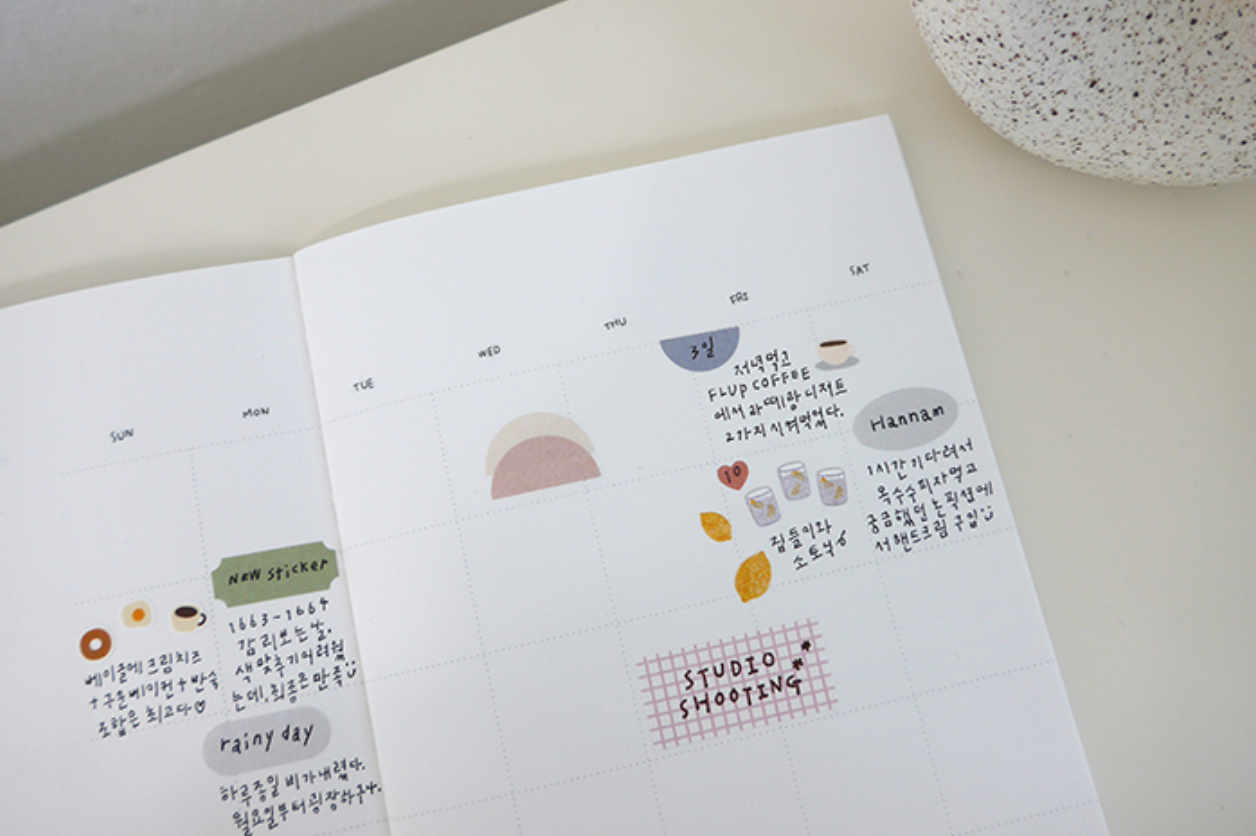 SUN
MON
TUE
WED
THU
FRI
SAT
3일
저녁먹고
FLUP COFFEE
에서 라떼랑 디저트
2가지 시켜먹었다.
Hannam
1시간 기다려서
옥수수피자먹고
궁금했던 논픽션에
서 핸드크림 구입
10
집들이와
소토식
New sticker
1663-1664
감리보는날.
색 맞추기 어려웠
는데, 최종은 만족
베이글에 크림치즈
+구운베이컨+반숙
조합은 최고다♡
STUDIO
SHOOTING
rainy day
하루종일 비가 내렸다.
월요일부터 굉장하구나.